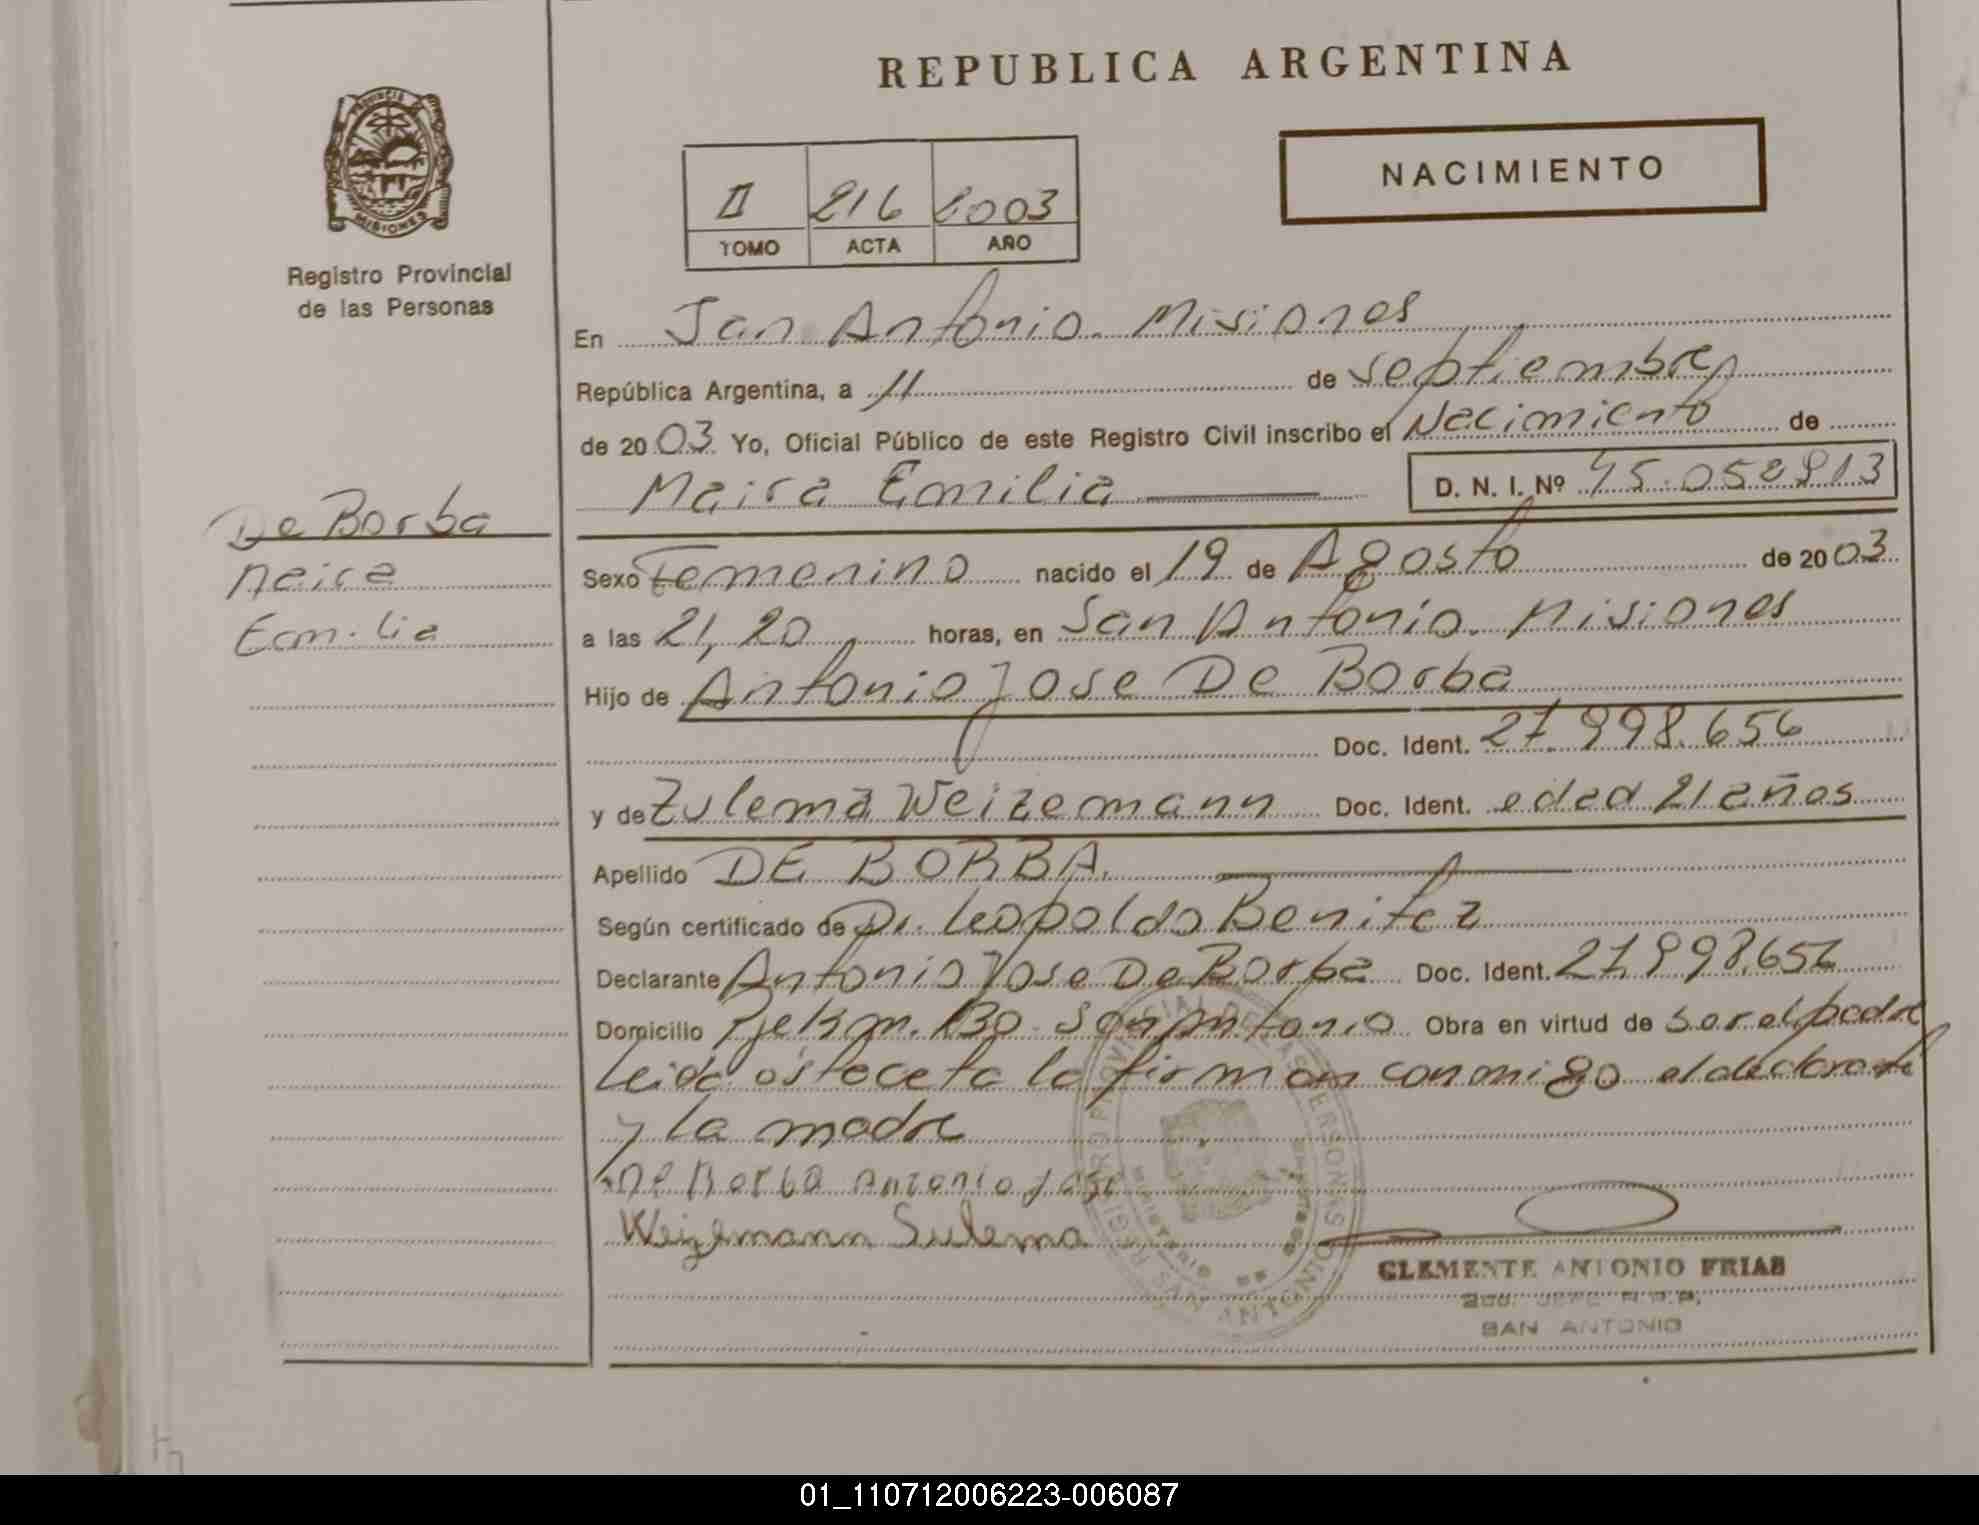 REPUBLICA ARGENTINA
PROVINCIA DE
MISIONES
Registro Provincial
de las Personas
II 216 2003
TOMO ACTA AÑO
NACIMIENTO
En San Antonio. Misiones
República Argentina, a 11 de septiembre
de 2003 Yo, Oficial Público de este Registro Civil inscribo el Nacimiento de
Maira Emilia D. N. I. Nº 45.052813
De Borba
Maira
Emilia
Sexo Femenino nacido el 19 de Agosto de 2003
a las 21,20 horas, en San Antonio. Misiones
Hijo de Antonio Jose De Borba
Doc. Ident. 27.998.656
y de Zulema Weizemann Doc. Ident. edad 21 años
Apellido DE BORBA.
Según certificado de Dr. Leopoldo Benitez
Declarante Antonio Jose De Borba Doc. Ident. 27.998.656
Domicilio Pje Km. 130. San Antonio Obra en virtud de ser el padre
Leida esta ceta la firman conmigo el declarante
y la madre
De Borba Antonio Jose
Weizemann Sulema
REGISTRO PROVINCIAL DE LAS PERSONAS
SAN ANTONIO
CLEMENTE ANTONIO FRIAS
2do. JEFE R.P.P.
SAN ANTONIO
01_110712006223-006087